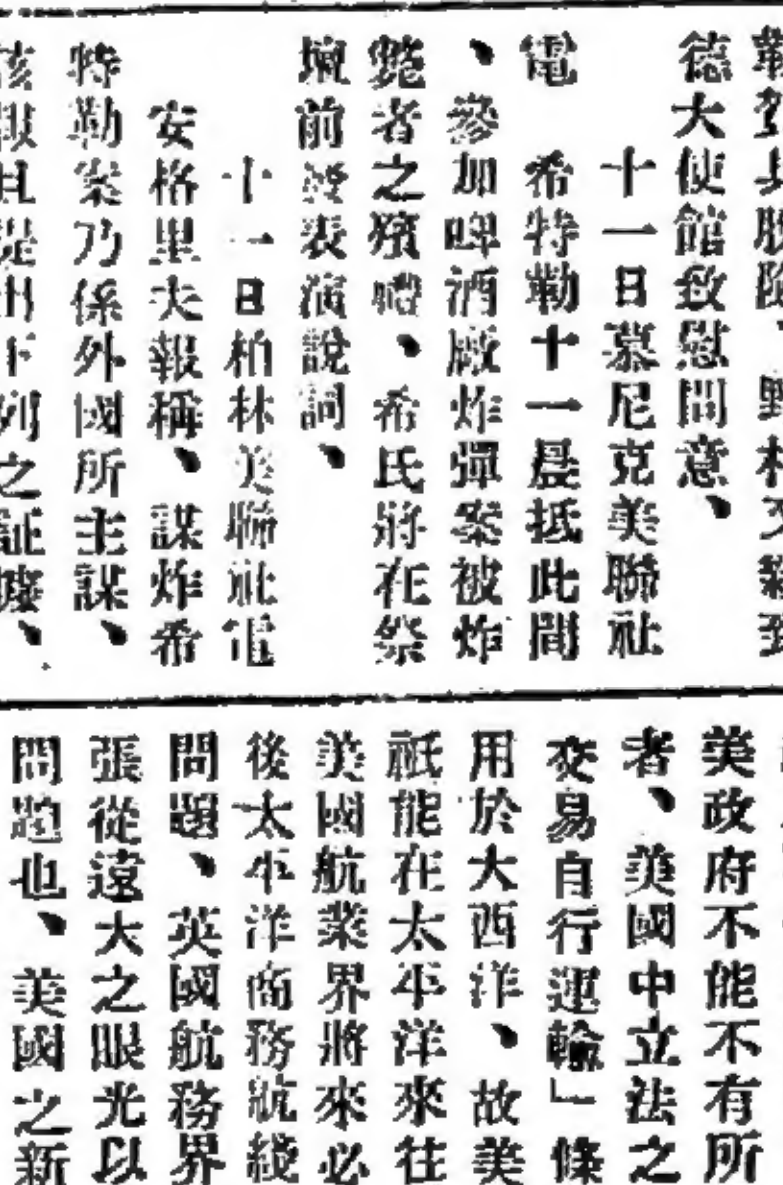 德大使館致慰問意、
十一日慕尼克美聯社
電　希特勒十一晨抵此間
、參加啤酒廠炸彈案被炸
斃者之殯禮、希氏將在祭
壇前發表演說詞、
十一日柏林美聯社電
安格里夫報稱、謀炸希
特勒案乃係外國所主謀、
該報且提出下列之証據、
美政府不能不有所
者、美國中立法之
交易自行運輸」條
用於大西洋、故美
祇能在太平洋來往
美國航業界將來必
後太平洋商務航綫
問題、英國航務界
張從遠大之眼光以
問題也、美國之新